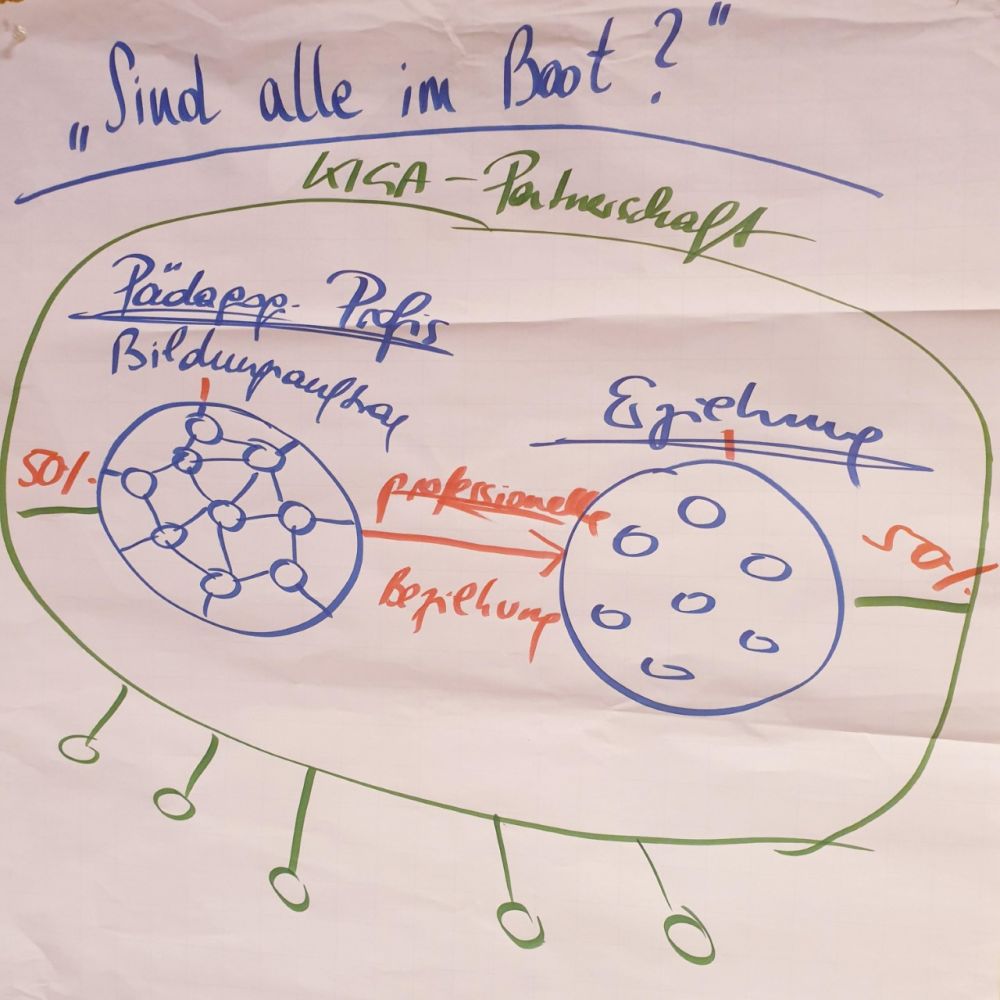 „Sind alle im Boot?"
KIGA-Partnerschaft
Pädagog. Profis
Bildungsauftrag
Erziehung
50%
professionelle
Beziehung
50%